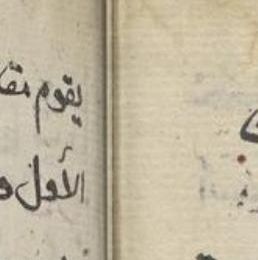 يقوم مقا
الأول و